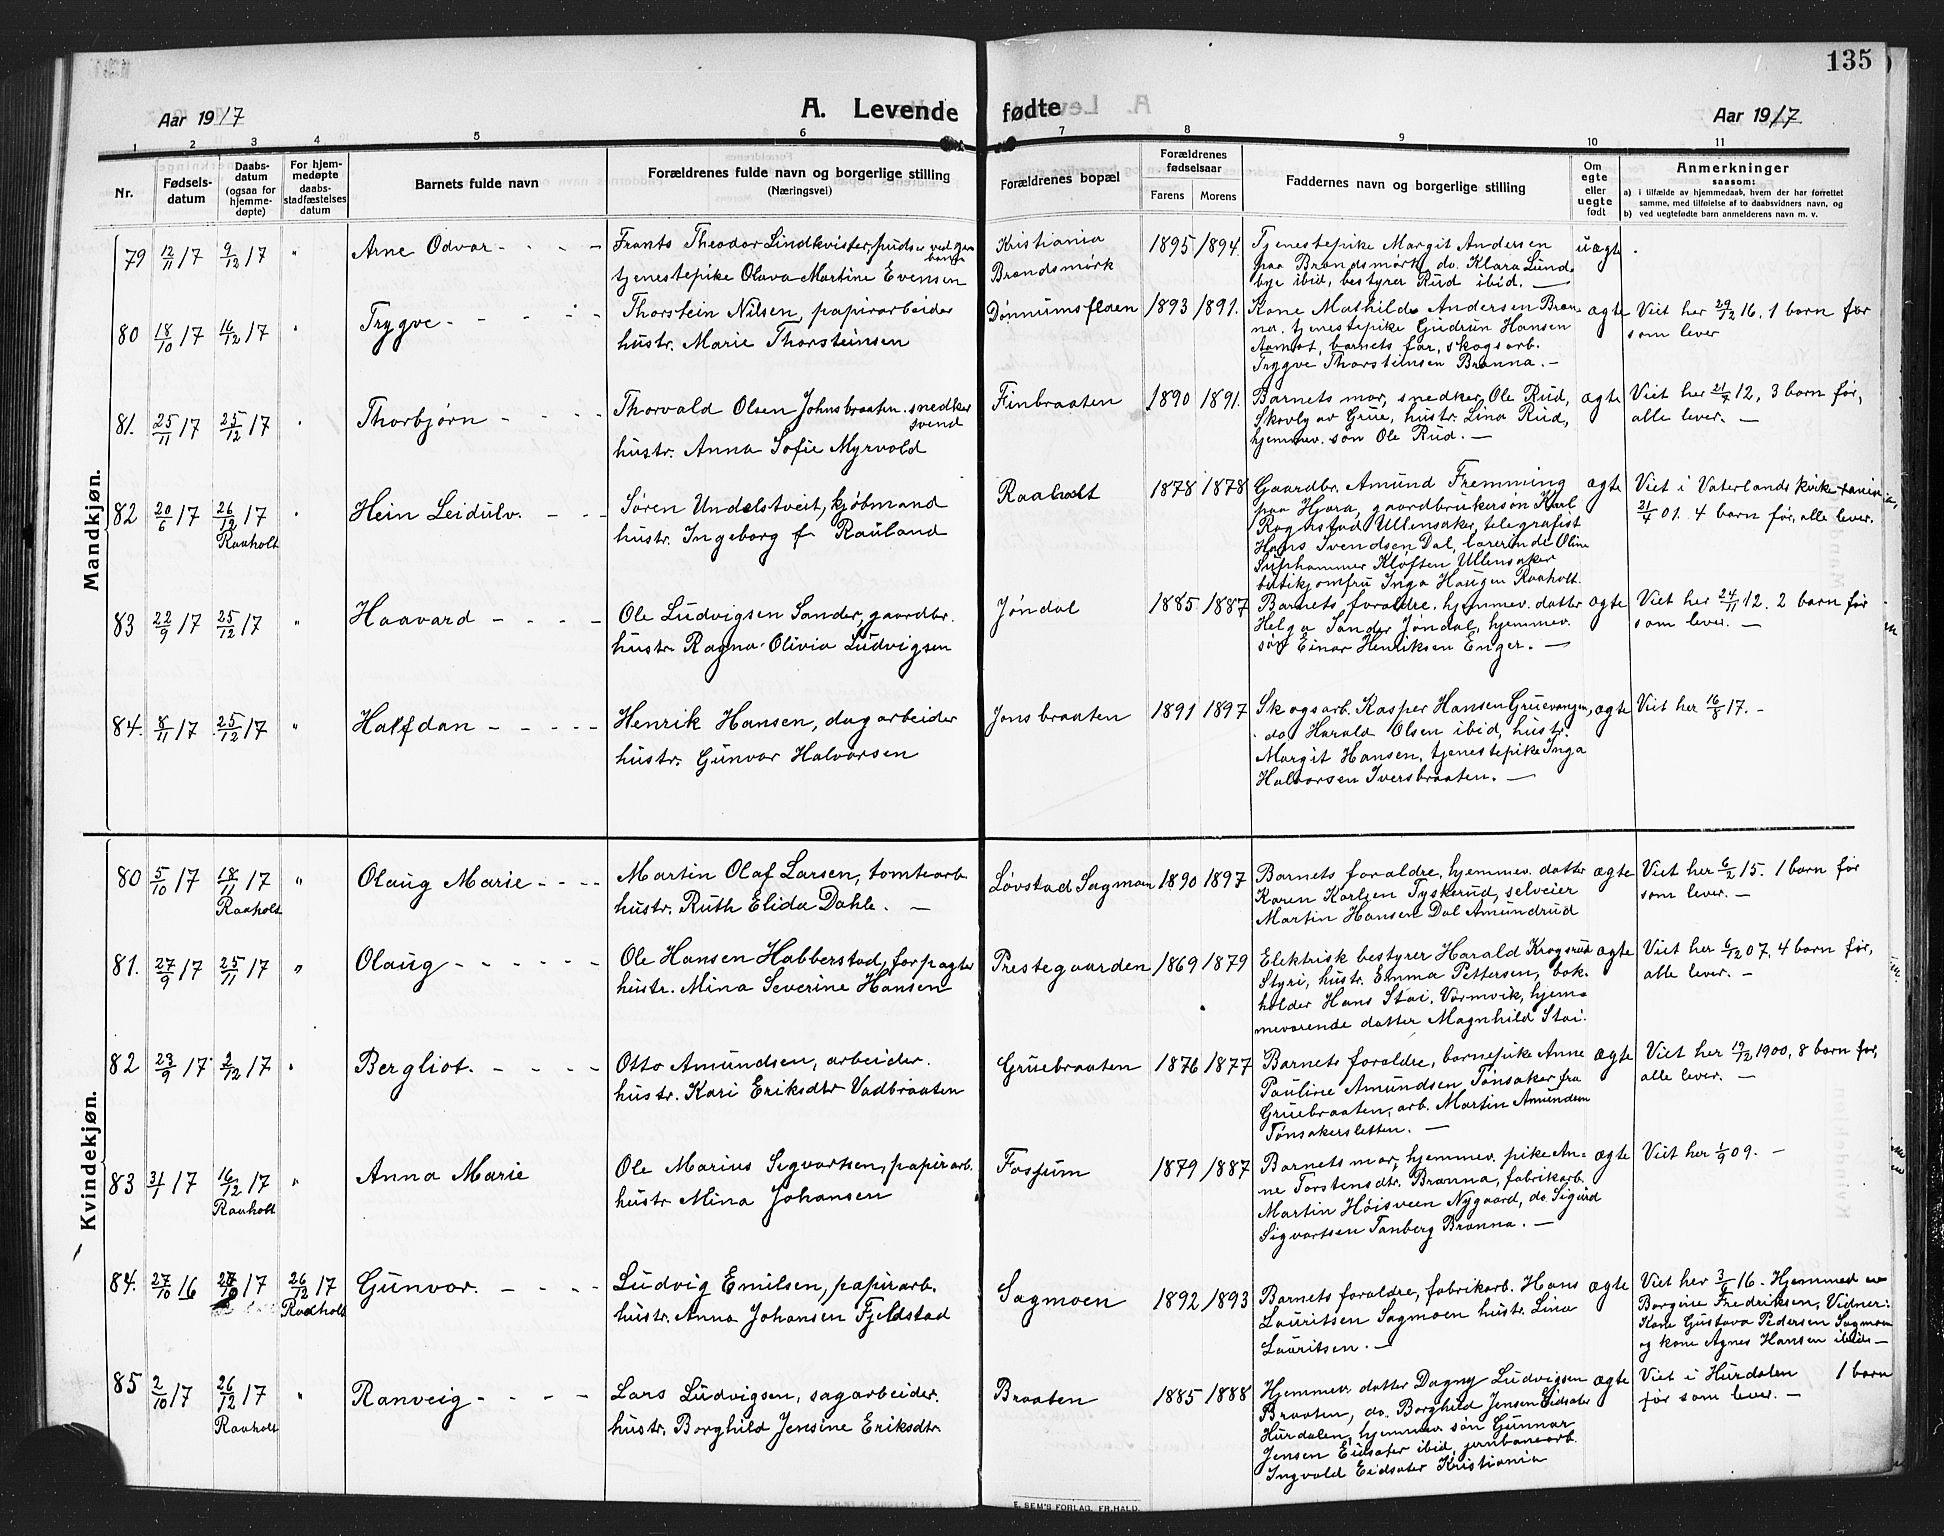 135
Aar 1917
A. Levende fødte
Aar 1917
1 2 3 4 5 6 7 8 9 10 11
Nr.
Fødsels-
datum
Daabs-
datum
(ogsaa for
hjemme-
døpte)
For hjem-
medøpte
daabs-
stadfæstelses
datum
Barnets fulde navn
Forældrenes fulde navn og borgerlige stilling
(Næringsvei)
Forældrenes bopæl
Forældrenes
fødselsaar
Farens Morens
Faddernes navn og borgerlige stilling
Om
egte
eller
uegte
født
Anmerkninger
saasom:
a) i tilfælde av hjemmedaab, hvem der har forrettet
samme, med tilføielse af to daabsvidners navn, og
b) ved uegtefødte barn anmelderens navn m. v.
Mandkjøn.
79 12/11 17 9/12 17 " Arne Odvar - - - -
Frants Theodor Lindkvister, pudser ved jern
bane
tjenestepike Olava Martine Evensen
Kristiania
Brøndsmørk
1895 1894
Tjenestepike Margit Andersen
paa Brøndsmørk, do. Klara Lund-
bye ibid, bestyrer Rud ibid. —
uægte
80 18/10 17 16/12 17 " Trygve - - - -
Thorstein Nilsen, papirarbeider
hustr. Marie Thorsteinsen
Dønnumsfloen
1893 1891.
Kone Mathilde Andersen Bræn-
na, tjenestepike Gudrun Hansen
Aamot, barnets far, skogsarb.
Trygve Thorsteinsen Brænna. —
ægte
Viet her 29/12 16. 1 barn før
som lever
81. 25/11 17 25/12 17 " Thorbjørn - - - -
Thorvald Olsen Johnsbraaten. snedker
svend
hustr. Anna Sofie Myrvold
Finbraaten
1890 1891.
Barnets mor, snedker Ole Rud,
Skovly av Grue, hustr. Lina Rud,
hjemmev. søn Ole Rud. —
ægte
Viet her 21/4 12, 3 barn før,
alle lever. —
82 20/6 17 26/12 17 " Hein Leidulv. - - -
Raaholt
Søren Undelstveit, kjøbmand
hustr. Ingeborg f Rauland
Raaholt
1878 1878
Gaardbr. Amund Fremming
paa Hjøra, gaardbrukersøn Karl
Rognstad Ullensaker, telegrafist
Hans Svendsen Dal, lærerinde Oline
Kløften Ullensaker
butikjomfru Inga Haugen Raaholt.
ægte
Viet i Vaterlands kirke
21/4 01. 4 barn før, alle lever.
83 22/9 17 25/12 17 " Haavard - - - -
Ole Ludvigsen Sander, gaardbr.
hustr. Ragna Olivia Ludvigsen
Jøndal
1885 1887
Barnets foræeldre. hjemmev. datter
Helga Sander Jøndal, hjemmev.
søn Einar Henriksen Enger. —
ægte
Viet her 24/11 12. 2 barn før
som lever. —
84. 8/11 17 25/12 17 " Halfdan - - - -
Henrik Hansen, dagarbeider
hustr. Gunvor Halvorsen
Jonsbraaten
1891 1897
Skogsarb. Kasper Hansen Gruevangen,
do Harald Olsen ibid, hustr.
Margit Hansen, tjenestepike Inga
Halvorsen Iversbraaten. —
ægte
Viet her 16/8 17. -
Kvindekjøn.
80 5/10 17 18/11 17 " Olaug Marie - - - -
Raaholt
Martin Olaf Larsen, tomtearb
hustr. Ruth Elida Dahle. —
Løvstad Sagmoen
1890 1897
Barnets forældre, hjemmev. datter
Karen Karlsen Tyskerud, selveier
Martin Hansen Dal Amundrud
ægte
Viet her 6/2 15. 1 barn før
som lever. —
81. 27/9 17 25/11 17 " Olaug - - - - - -
Ole Hansen Habberstad, forpagter
hustr. Mina Severine Hansen
Prestegaarden
1869 1879
Elektrisk bestyrer Harald Krogsrud
Styri, hustr. Emma Pettersen, bok-
holder Hans Stai. Vormvik, hjem-
meværende datter Magnhild Stai.
ægte
Viet her 6/12 07. 4 barn før,
alle lever. —
82 23/9 17 2/12 17 " Bergliot. - - - -
Otto Amundsen, arbeider.
hustr. Kari Eriksdtr Vadbraaten
Gruebraaten
1876 1877
Barnets forældre, barnepike Anne
Pauline Amundsen Tønsaker fra
Gruebraaten, arb. Martin Amundsen
Tønsakersletten. —
ægte
Viet her 19/12 1900, 8 barn før,
alle lever. —
83 3/1 17 16/12 17 " Anna Marie
Raaholt
Ole Marius Sigvartsen, papirarb.
hustr Mina Johansen
Fossum
1879 1887
Barnets mor, hjemmev. pike An-
ne Torstensdtr. Brænna, fabrikarb.
Martin Høisveen Nygaard, do. Sigurd
Sigvartsen Tanberg Brænna. —
ægte
Viet her 1/9 09. -
84. 27/10 16 17 26/12 17 Gunvor. - - - -
Raaholt
Ludvig Emilsen, papirarb.
hustr. Anna Johansen Fjeldstad
Sagmoen
1892 1893
Barnets forældre, fabrikarb. Hans
Lauritsen Sagmoen hustr. Lina
Lauritsen. —
ægte
Viet her 3/6 16. Hjemmed av
Borgine Fredriksen, Vidner:
Kone Gustava Pedersen Sagmoen
og kone Agnes Hansen ibid. —
85 2/10 17 26/12 17 " Ranveig - - - -
Raaholt
Lars Ludvigsen, sagarbeider.
hustr. Borghild Jensine Eriksdtr.
Braaten
1885 1888
Hjemmev datter Dagny Ludvigsen
Braaten, do. Borghild Jensen Eidsæter
Hurdalen, hjemmev søn Gunnar
Jensen Eidsæter ibid, jernbanearb.
Ingvald Eidsæter Kristiania
ægte
Viet i Hurdalen 1 barn
før som lever. —
E. SEM'S FORLAG, FR.HALD.